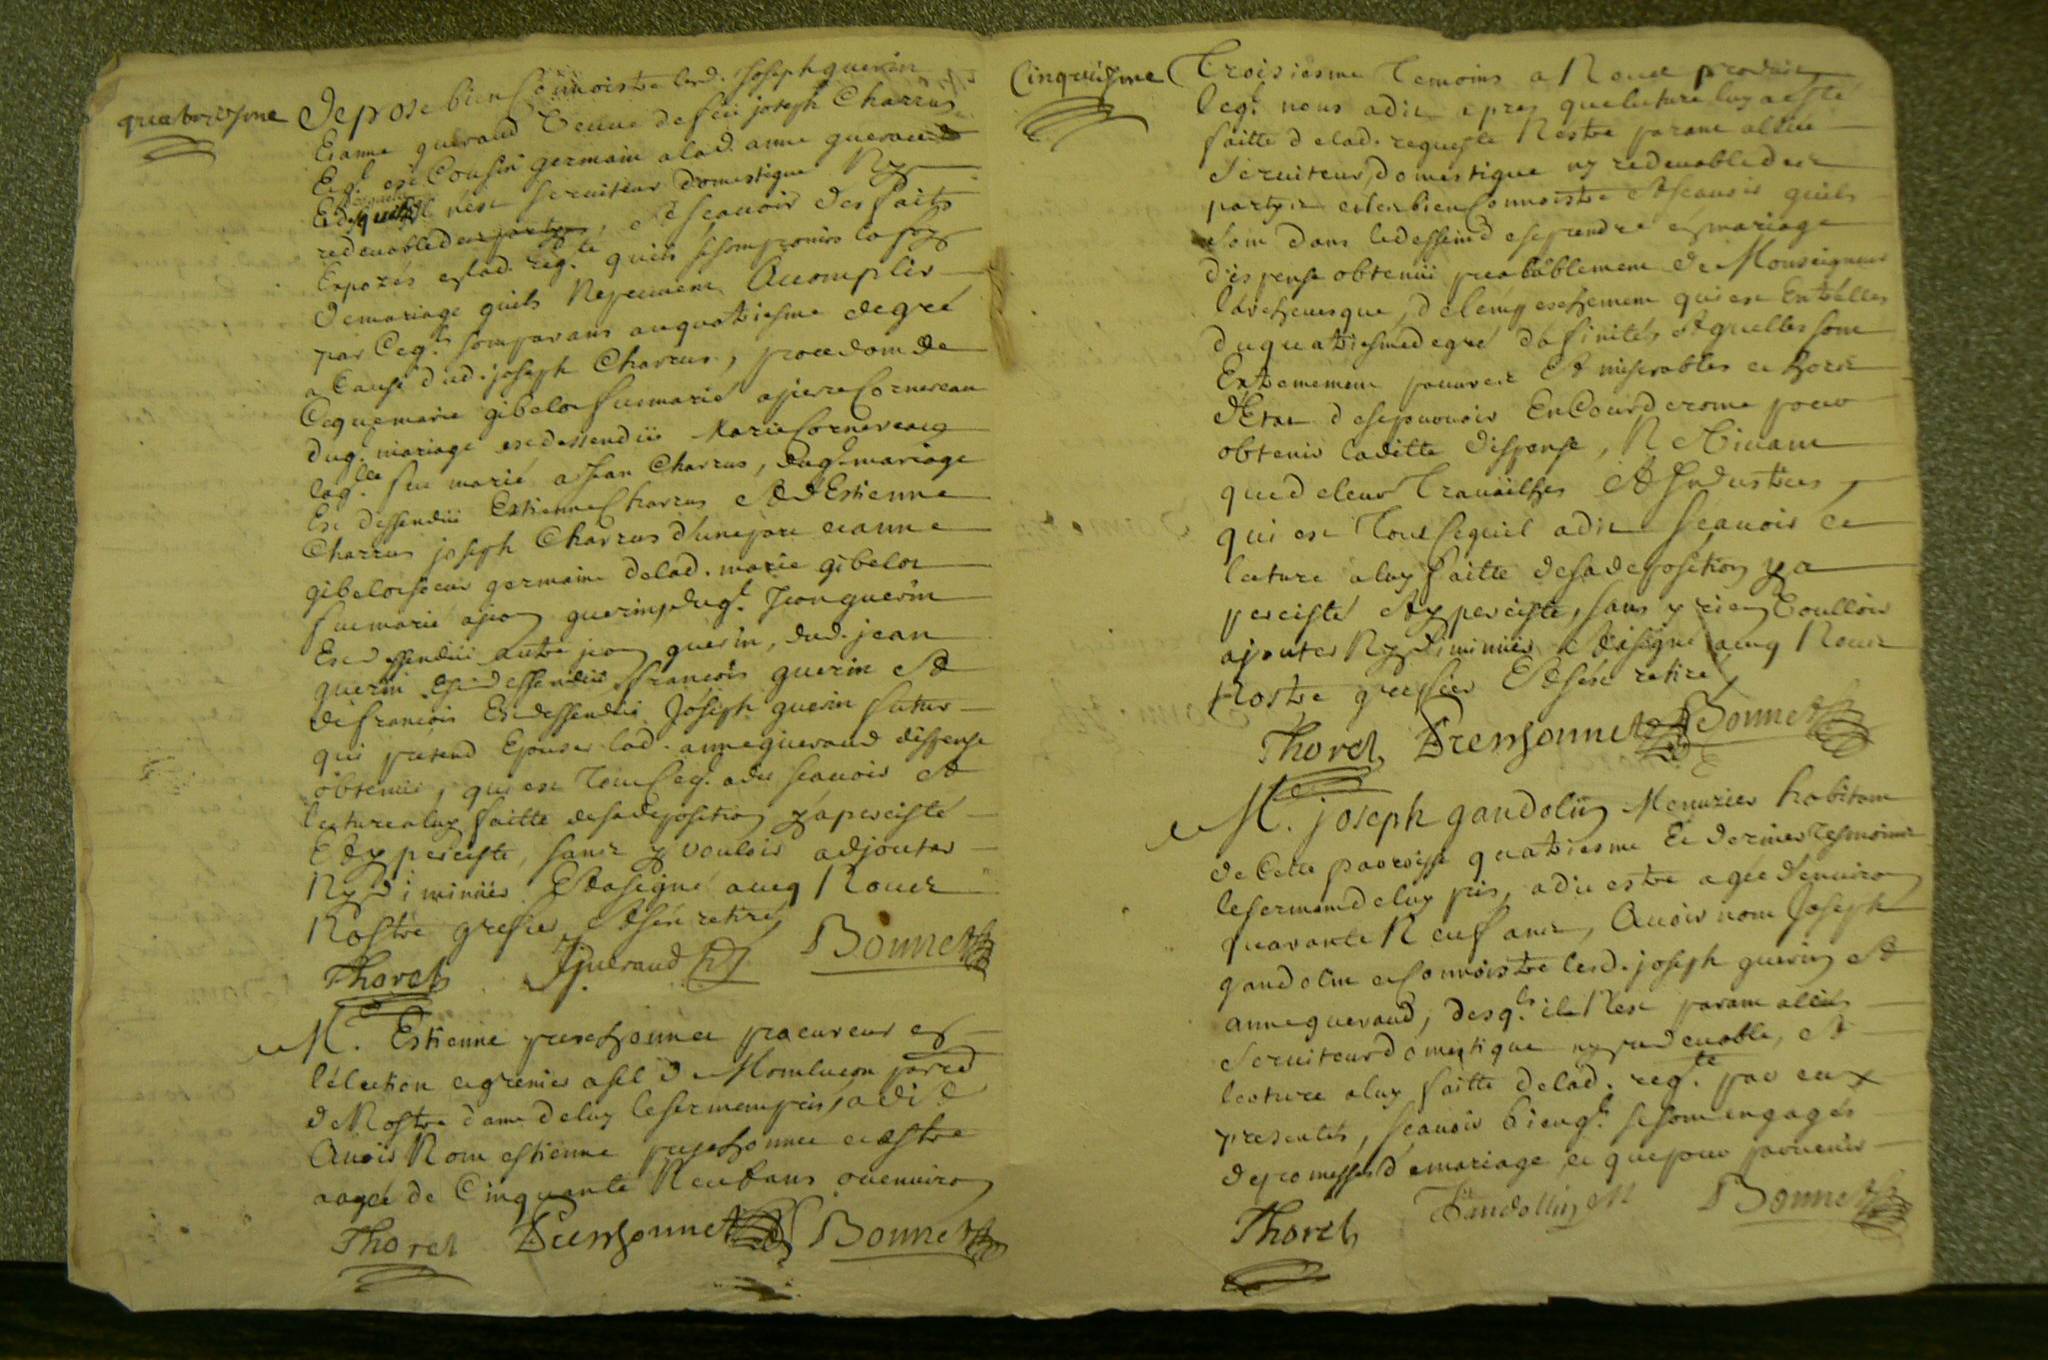 quatorzisme
depose bien Connoistre lesd. Joseph guerin
Et anne gueraud veuve de feu joseph Charrus
Leql est Cousin germain a lad. anne gueraud
Et desquels il nest seruiteur domestique Ny
redeuable des partyes, et scauoir des faits
Exposés esd. reqte quils se sont promis la foy
de mariage quils Ne peuuent Accomplir
par Ceqls sont parans au quatriesme degré
a Cause dud. joseph Charrus, procedom de
Ceque marie gibelot fu marié a pierre Cornereau
duql mariage est dessendüe Marie Cornereau
laqlle fu marié a Jean Charrus, duql mariage
Est dessendü Estienne Charrus Et d'Estienne
Charrus joseph Charrus d'une part et anne
gibelot soeur germaine de lad. marie gibelot
fu marié a jean guerin, duql Jean guerin
Est dessendü autre jean guerin, dud. jean
guerin Est dessendü francois guerin Et
de francois Est dessendü Joseph guerin futur
qui pretend Epouser lad. anne gueraud dispense
obtenüe, qui est Tout Ceql a dit scauoir Et
lecture a luy faitte de sa deposition y a percisté
Et y perciste, sans y vouloir adjouter
Ny diminüer Et a signé aueq Nous
Nostre grefier Et s'en retiré
Thorel Jgueraud Bonnet
M. Estienne preschonnet procureur en
l'élection et grenier a sel de Montlucon paroisse
de Nostre dame de luy le serment pris, a dit
Auoir Nom estienne preschonnet et estre
aagé de Cinquante Neuf ans ou enuiron
Thorel Preschonnet Bonnet
Cinquiesme
Troisiesme Temoins a Nous produit
leql nous a dit apres que lecture luy a esté
faitte de lad. requeste N'estre parant allié
seruiteur, domestique ny redeuable des
partyes et les bien Connoistre Et scauoir quils
sont dans le dessein de se prendre en mariage
dispense obtenüe prealablement de Monseigneur
l'archeuesque, de l'empeschement qui est Entr'elles
du quatriesme degré d'afinités Et quelles sont
Extremement pauures Et miserables et hors
d'Etat de se pouruoir En Cour de rome pour
obtenir laditte dispense, Ne Viuant
que de leur Trauailhes Et Industries,
qui est Tout Ce quil a dit scauoir et
lecture a luy faitte de sa deposition y a
percisté Et y perciste, sans y rien Voulloir
ajouter Ny diminüer Et a signé aueq Nous
Nostre greffier Et s'est retiré
Thorel Preschonnet Bonnet
M. joseph gandolin Menuzier habitant
de Cette paroisse quatriesme Et dernier Tesmoins
le serment de luy pris, a dit estre agée d'enuiron
quarante Neuf ans, Auoir nom Joseph
gandolin et Connoistre lesd. joseph guerin Et
anne gueraud, desqls il Nest parant allié
seruiteur domestique ny redeuable, Et
lecture a luy faitte de lad. reqte par eux
presentés, scauoir bien ql se sont engagés
de promesses de mariage, et que pour paruenir
Thorel Gandollin Bonnet